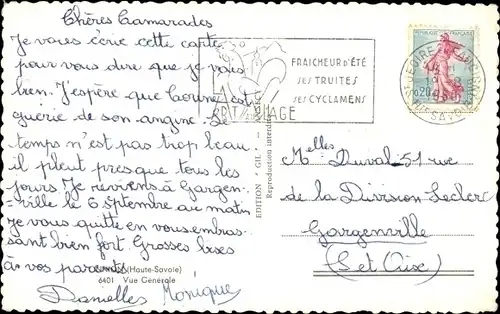 Chères Camarades
Je vous écris cette carte
pour vous dire que je vais
bien. J'espère que Corinne est
guerie de son angine. Le
temps n'est pas trop beau.
il pleut presque tous les
jours Je reviens à Gargen-
-ville le 6 septembre au matin
Je vous quitte en vous embras-
sant bien fort. Grosses bises
à vos parents
(Haute-Savoie)
6401 Vue Générale
Danielles Monique
FRAICHEUR D'ÉTÉ
SES TRUITES
SES CYCLAMENS
EDITION "GIL"
Reproduction interdite
REPUBLIQUE FRANÇAISE
0,20
Melles Duval 51 rue
de la Division Leclerc
Gargenville
(S et Oise)